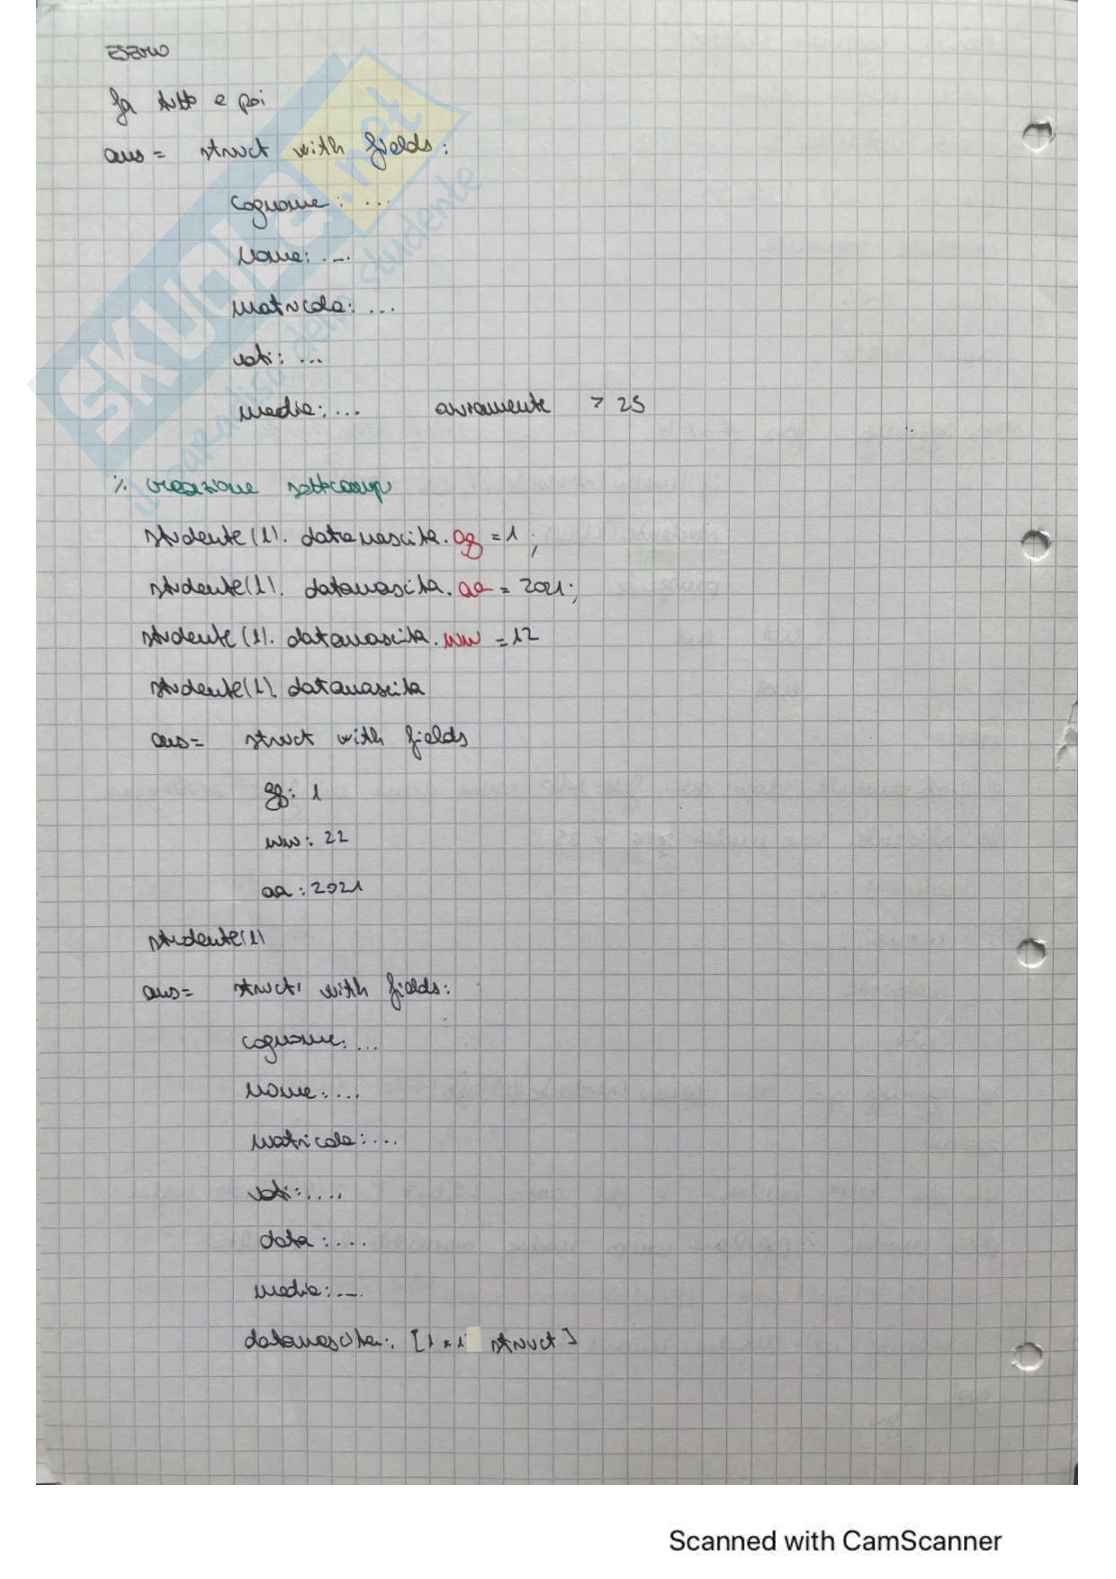 fa tutto e poi
ans = struct with fields:
cognome: ...
nome: ...
matricola: ...
voti: ...
media: ... ovviamente > 25
% creazione sottocampi
studente(1). datanascita.gg = 1;
studente(1). datanascita.aa = 2021;
studente(1). datanascita.mm = 12
studente(1). datanascita
ans = struct with fields
gg: 1
mm: 22
aa: 2021
studente(1)
ans = struct with fields:
cognome: ...
nome: ...
matricola: ...
voti: ....
data: ...
media: ...
datanascita: [1x1 struct]
SKUOLA.net
Scanned with CamScanner